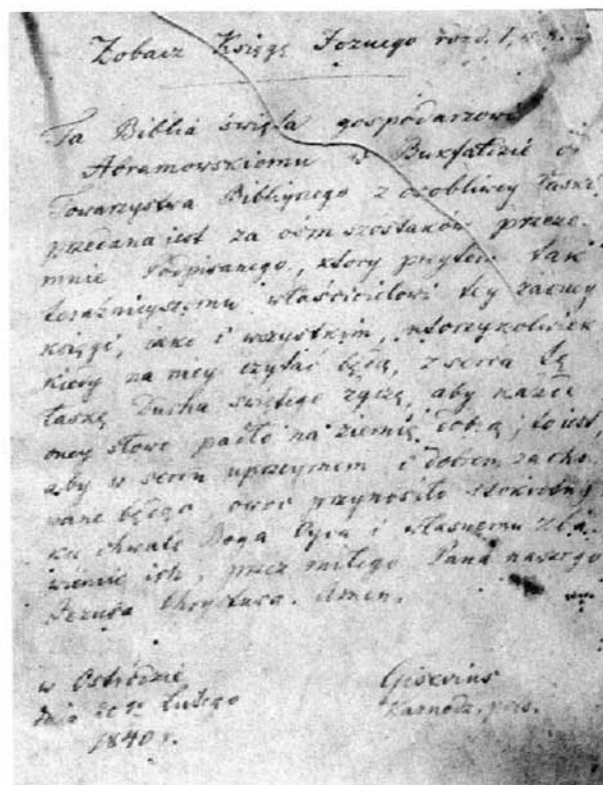 Zobacz Księgę Jozuego rozd. 1, w. 8.
Ta Biblia święta gospodarzowi
Abramowskiemu w Bukfałdzie od
Towarzystwa Biblijnego z osobliwey łaski
przedana jest za ośm szóstaków przeze
mnie podpisanego, który przytem tak
teraźnieyszemu właścicielowi tey zacney
księgi, iako i wszystkim, którzykolwiek
kiedy na niey czytać będą, z serca tę
łaskę Ducha świętego życzę, aby każde
oney słowo padło na ziemię dobrą; to iest,
aby w sercu uprzeymem i dobrem zacho-
wane będąc owoc przynosiło stokrotny
ku chwale Boga Oyca i własnemu zba-
wieniu ich, przez miłego Pana naszego
Jezusa Chrystusa. Amen.
w Ostródzie
dnia 20 Lutego
1840 r.
Gisevius
Kaznodz. pols.